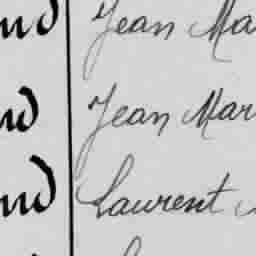 nd Jean Ma
nd Jean Mar
nd Laurent